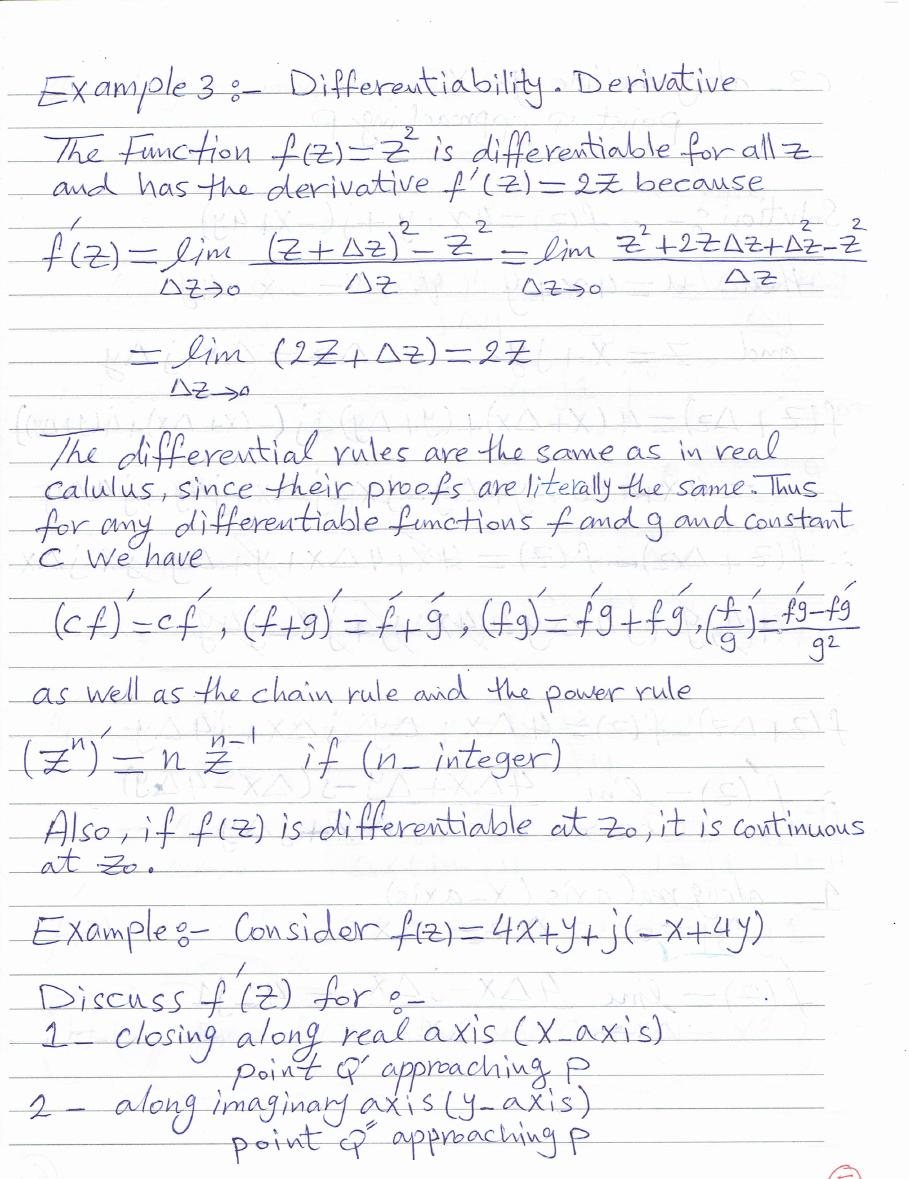 Example 3 :- Differentiability. Derivative
The Function f(z)=z² is differentiable for all z
and has the derivative f′(z)=2z because
f′(z) = lim_{Δz→0} ((z+Δz)²-z²)/Δz = lim_{Δz→0} (z²+2zΔz+Δz²-z²)/Δz
= lim_{Δz→0} (2z+Δz)=2z
The differential rules are the same as in real
calulus, since their proofs are literally the same. Thus
for any differentiable functions f and g and constant
C we have
(cf)′=cf′, (f+g)′=f′+g′, (fg)′=f′g+fg′, (f/g)′=(f′g-fg′)/g²
as well as the chain rule and the power rule
(zⁿ)′ = n zⁿ⁻¹ if (n- integer)
Also, if f(z) is differentiable at z₀, it is continuous
at z₀.
Example:- Consider f(z)=4x+y+j(-x+4y)
Discuss f′(z) for :-
1- closing along real axis (x-axis)
point Q′ approaching P
2- along imaginary axis (y-axis)
point Q″ approaching P